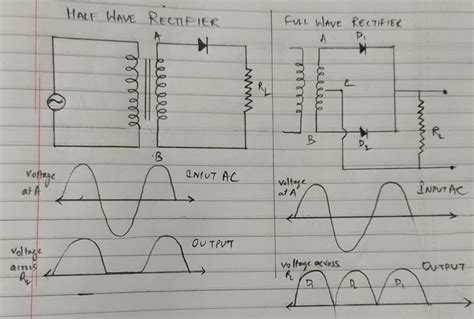 HALF WAVE RECTIFIER
A
RL
B
voltage at A
INPUT AC
voltage across RL
OUTPUT
FULL WAVE RECTIFIER
A
D1
C
B
D2
RL
voltage at A
INPUT AC
voltage across RL
OUTPUT
D1 D2 D1